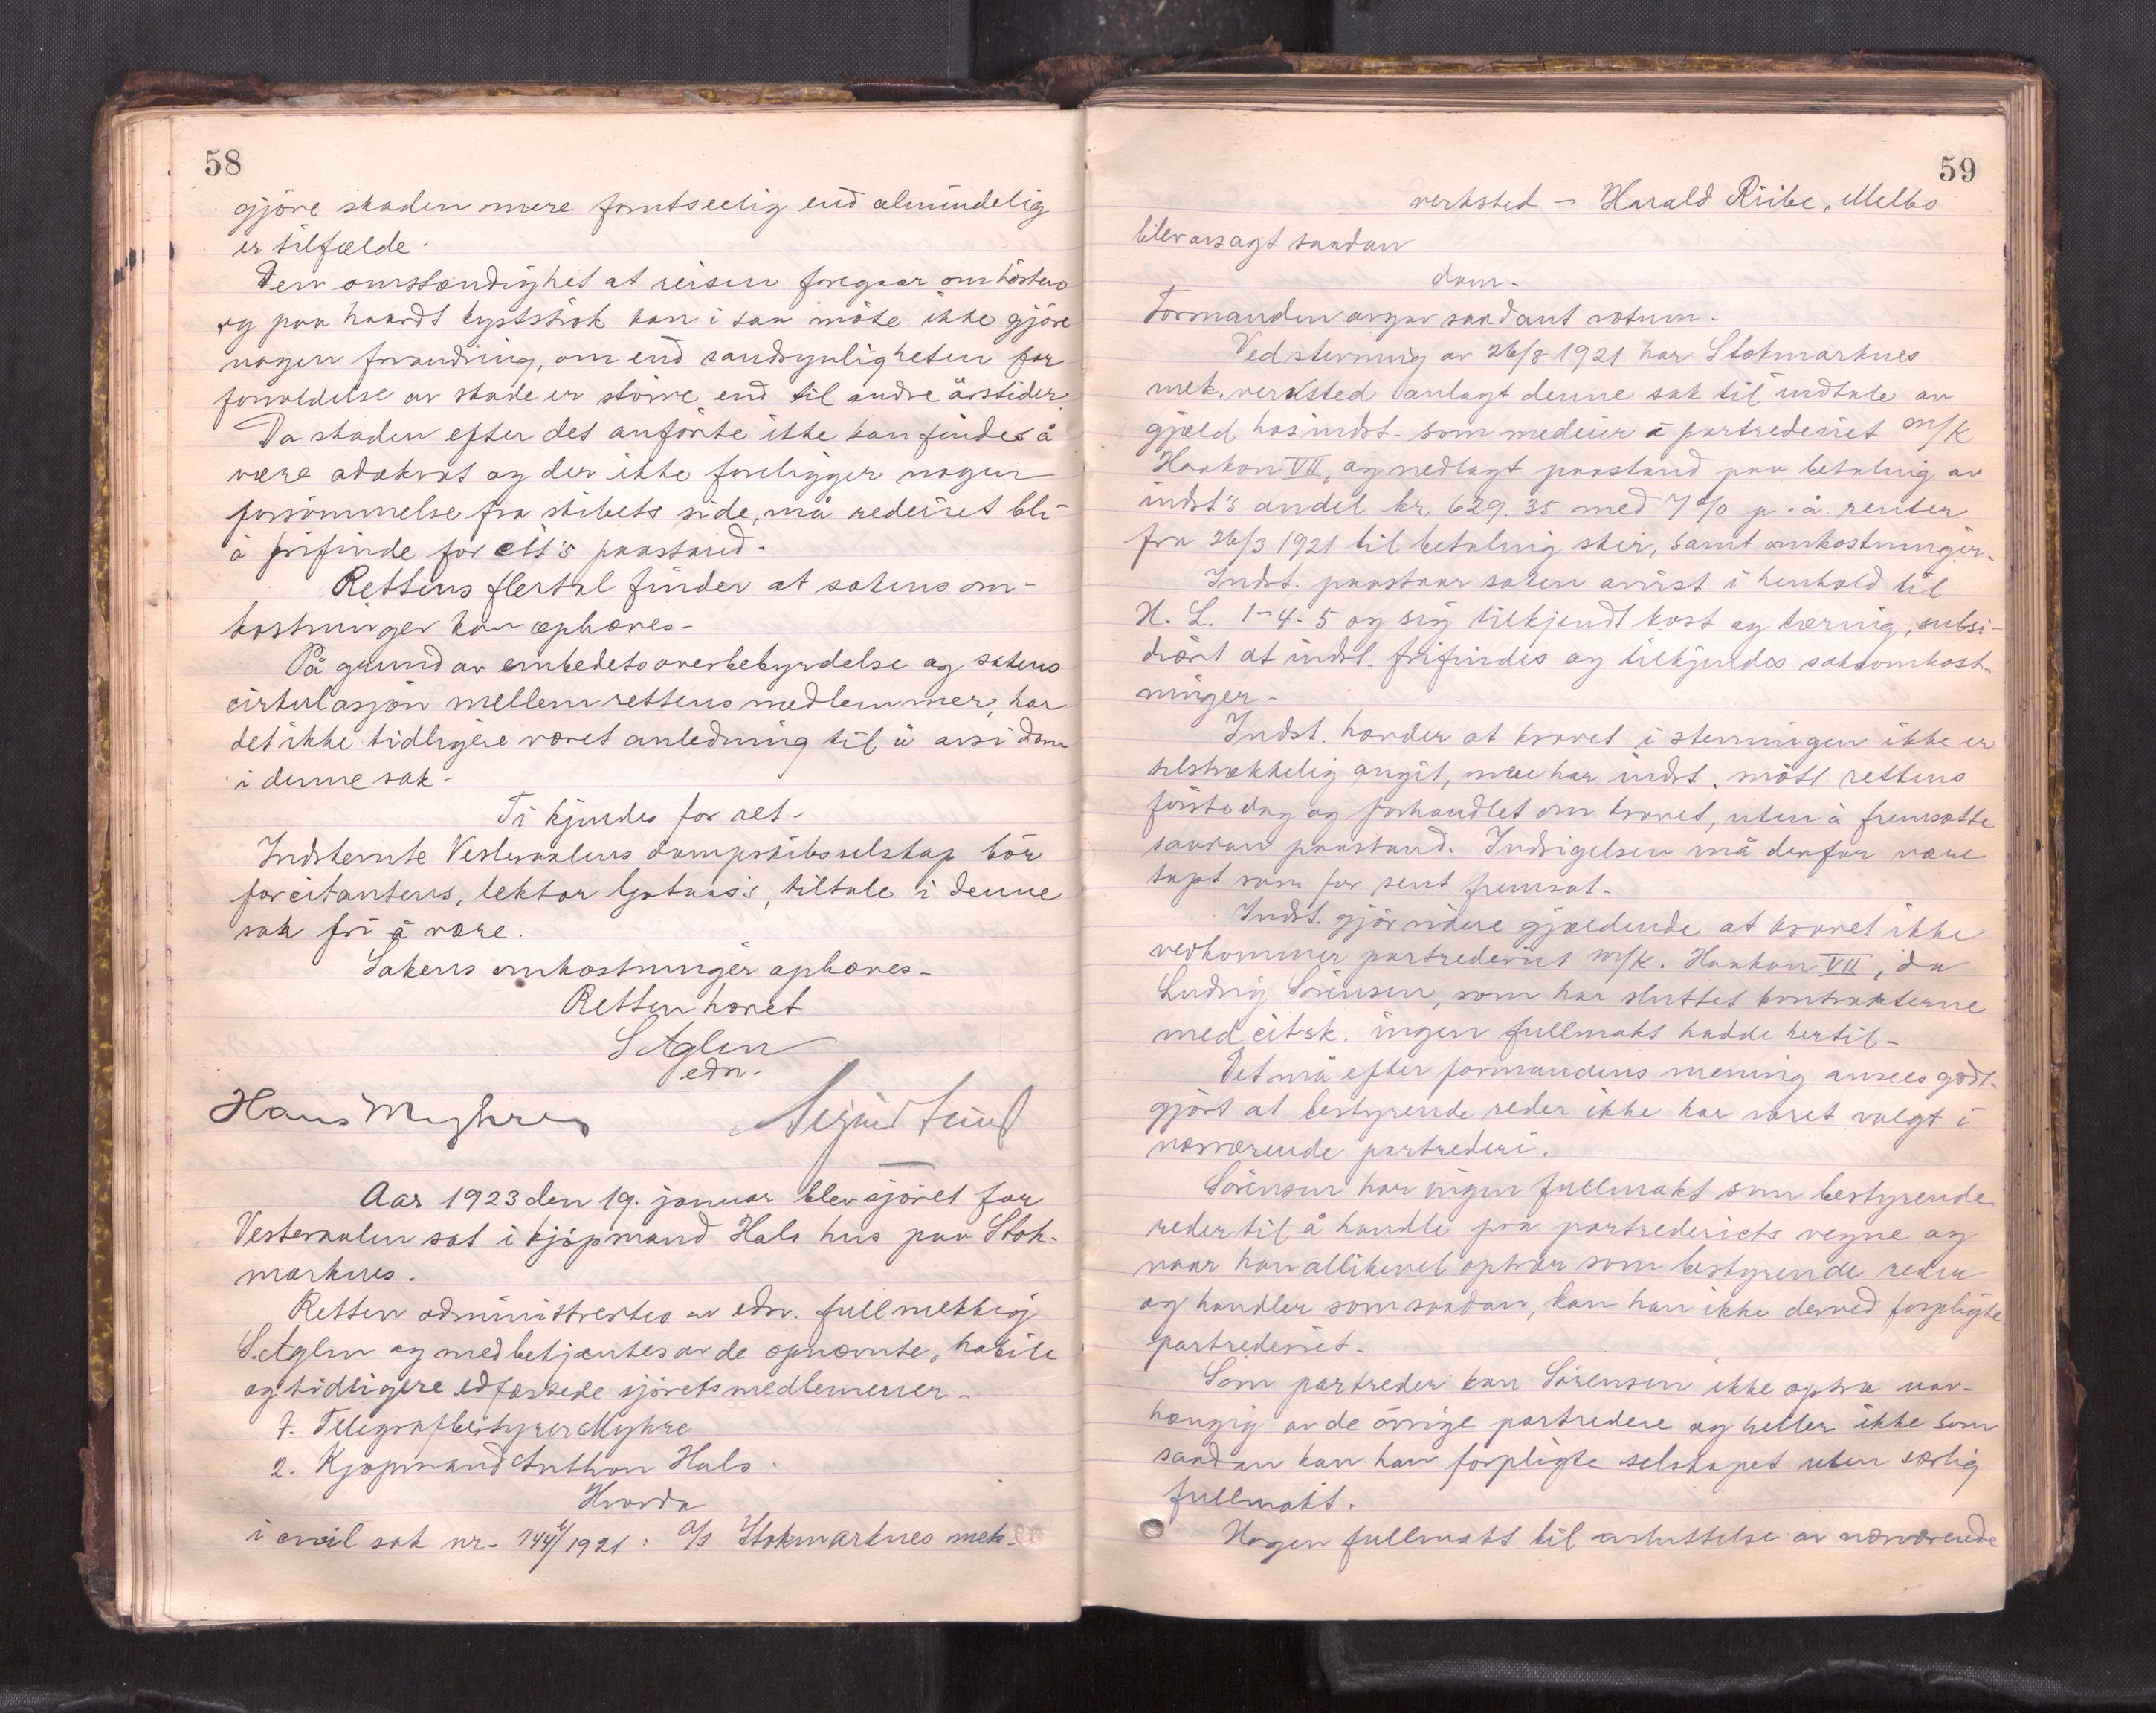 58
gjöre skaden mere forutseelig end almindelig
er tilfælde.
Den omstændighet at reisen foregaar om hösten
og paa haardt kystströk kan i saa möte ikke gjöre
nogen forandring, om end sandsynligheten for
forvoldelse av skade er större end til andre årstider.
Da skaden efter det anförte ikke kan findes å
være adækvat og der ikke foreligger nogen
forsömmelse fra skibets side, må rederiet bli
å frifinde for cit's paastand.
Rettens flertal finder at sakens om-
kostninger kan ophæves-
På grund av embedets overbebyrdelse og sakens
cirkulasjon mellem rettens medlemmer, har
det ikke tidligere været anledning til å avsi dom
i denne sak-
Ti kjendes for ret-
Indstevnte Vesteraalens dampskibsselskap bör
for citantens, lektor tiltale i denne
sak fri å være.
Sakens omkostninger ophæves-
Retten hævet
S Aglen
edn.
Hans Myhre Sigurd
Aar 1923 den 19. januar blev sjöret for
Vesteraalen sat i kjöpmand Hals hus paa Stok-
marknes.
Retten administrertes av edn. fullmektig
S. Aglen og medbetjentes av de opnævnte, habile
og tidligere edfæstede sjöretsmedlemmer-
1. Telegrafbestyrer Myhre
2. Kjöpmand Anthon Hals.
Hvorda
i civil sak nr. 144/1921: A/S Stokmarknes mek.
59
verksted - Harald Riibe, Melbo
blev avsagt saadan
dom-
Formanden avgav saadant votum-
Ved stevning av 26/8 1921 har Stokmarknes
mek. verksted anlagt denne sak til indtale av
gjæld hos indst. som medeier i partrederiet m/k
Haakon VII, og nedlagt paastand paa betaling av
indst's andel kr. 629.35 med 7% p.a. renter
fra 26/3 1921 til betaling skér, samt omkostninger-
Indst. paastaar saken avvist i henhold til
N. L. 1-4-5 og sig tilkjendt kost og tæring, subsi-
diært at indst. frifindes og tilkjendes saksomkost-
ninger-
Indst. hævder at kravet i stevningen ikke er
tilstrækkelig angit, men har indst. mött rettens
förste dag og forhandlet om kravet, uten å fremsætte
saadan paastand. Indsigelsen må derfor være
tapt som for sent fremsat-
Indst. gjör videre gjældende at kravet ikke
vedkommer partrederiet m/k. Haakon VII, da
Ludvig Sörensen, som har sluttet kontrakterne
med citsk. ingen fullmakt hadde hertil-
Det må efter formandens mening ansees godt-
gjort at bestyrende reder ikke har været valgt i
nærværende partrederi.
Sörensen har ingen fullmakt som bestyrende
reder til å handle paa partrederiets vegne og
naar han allikevel optrær som bestyrende reder
og handler som saadan, kan han ikke derved forpligte
partrederiet-
Som partreder kan Sörensen ikke optræ uav-
hængig av de övrige partredere og heller ikke som
saadan kan han forpligte selskapet uten særlig
fullmakt.
Nogen fullmakt til avsluttelse av nærværende